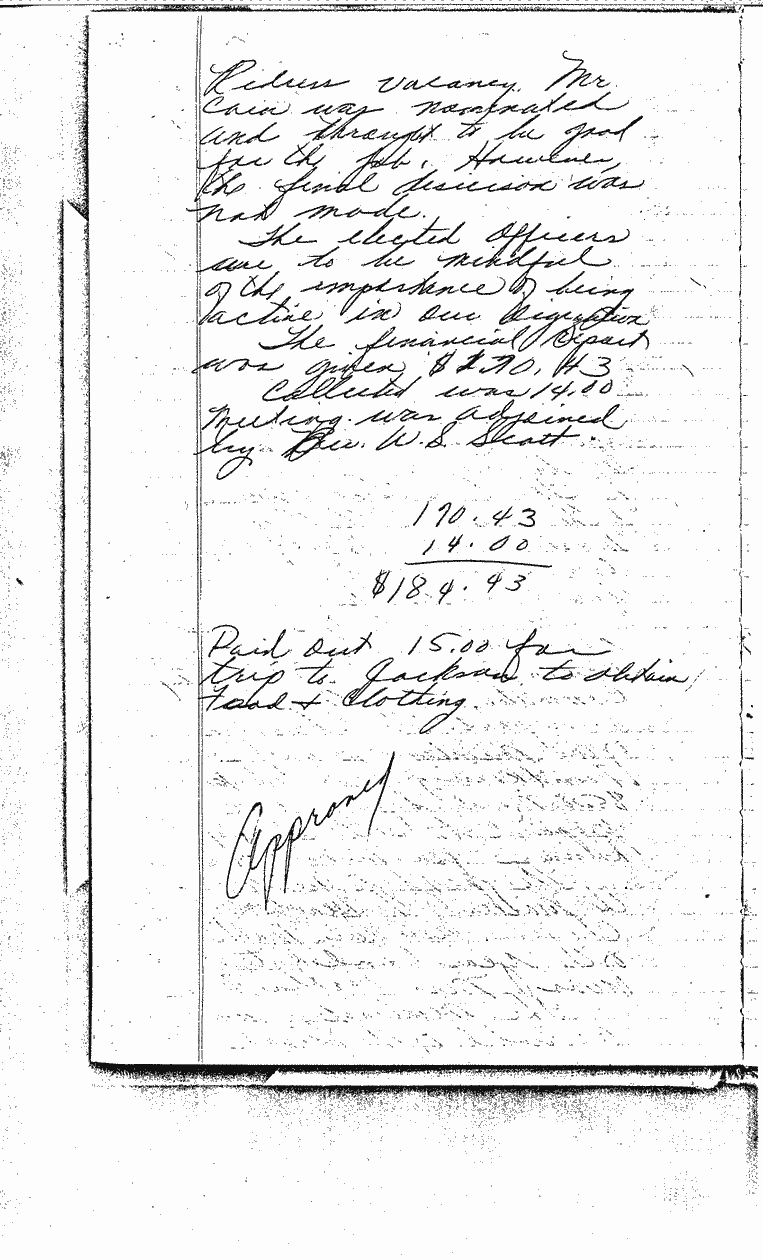 vacancy. Mr.
Cain was nominated
and throught to be good
for the job. However,
the final desicison was
not made.
The elected officers
are to be mindful
of the importance of being
active in our
The financial Report
was given, $170.43
Collected was 14.00
Meeting was adjoined
by Rev. W. S. Scott.
170.43
14.00
$184.43
Paid out 15.00 for
trip to Jackson to obtain
Food & Clothing.
Approved